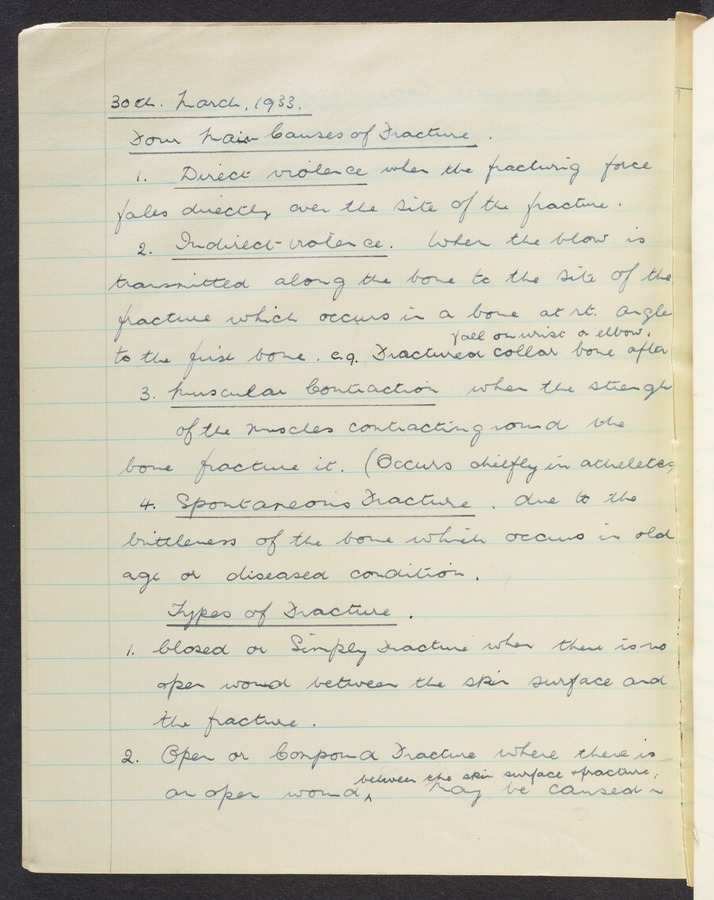 30th. March, 1933.
Four Main Causes of Fracture.
1. Direct violence when the fracturing force
fales directly over the site of the fracture.
2. Indirect violence. When the blow is
transmitted along the bone to the site of the
fracture which occurs in a bone at rt. angle
fall on wrist or elbow.
to the first bone. e.g. Fractured collar bone after
3. Muscular Contraction when the strengh
of the muscles contracting round the
bone fracture it. (Occurs cheifly in atheletes
4. Spontaneous Fracture. due to the
brittleness of the bone which occurs in old
age or diseased condition.
Types of Fracture.
1. Closed or Simply Fracture when there is no
open wound between the skin surface and
the fracture.
2. Open or Compound Fracture where there is
between the skin surface & fracture.
an open wound, ^ May be caused